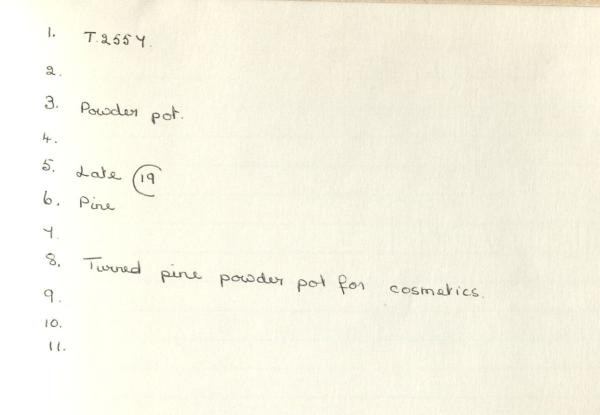 1. T.2557.
2.
3. Powder pot.
4.
5. Late C19
6. Pine
7.
8. Turned pine powder pot for cosmetics.
9.
10.
11.